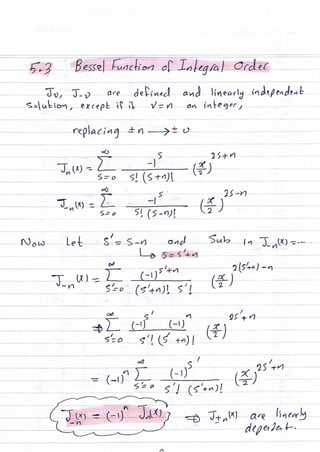 5.3 Bessel Function of Integral Order
Jν, J-ν are defined and linearly independent
Solution, except if it ν=n an integer,
replacing ±n ⟶ ± υ
Jn(x) = ∑_{s=0}^{∞} -1^s / s! (s+n)! (x/2)^{2s+n}
J-n(x) = ∑_{s=0}^{∞} -1^s / s! (s-n)! (x/2)^{2s-n}
Now Let s' = s-n and Sub in J-n(x) = ---
↳ s = s'+n
J-n(x) = ∑_{s'=0}^{∞} (-1)^{s'+n} / (s'+n)! s'! (x/2)^{2(s'+n)-n}
⇒ ∑_{s'=0}^{∞} (-1)^{s'} (-1)^n / s'! (s'+n)! (x/2)^{2s'+n}
= (-1)^n ∑_{s'=0}^{∞} (-1)^{s'} / s'! (s'+n)! (x/2)^{2s'+n}
J-n(x) = (-1)^n Jn(x) ⇒ J±n(x) are linearly
dependent.